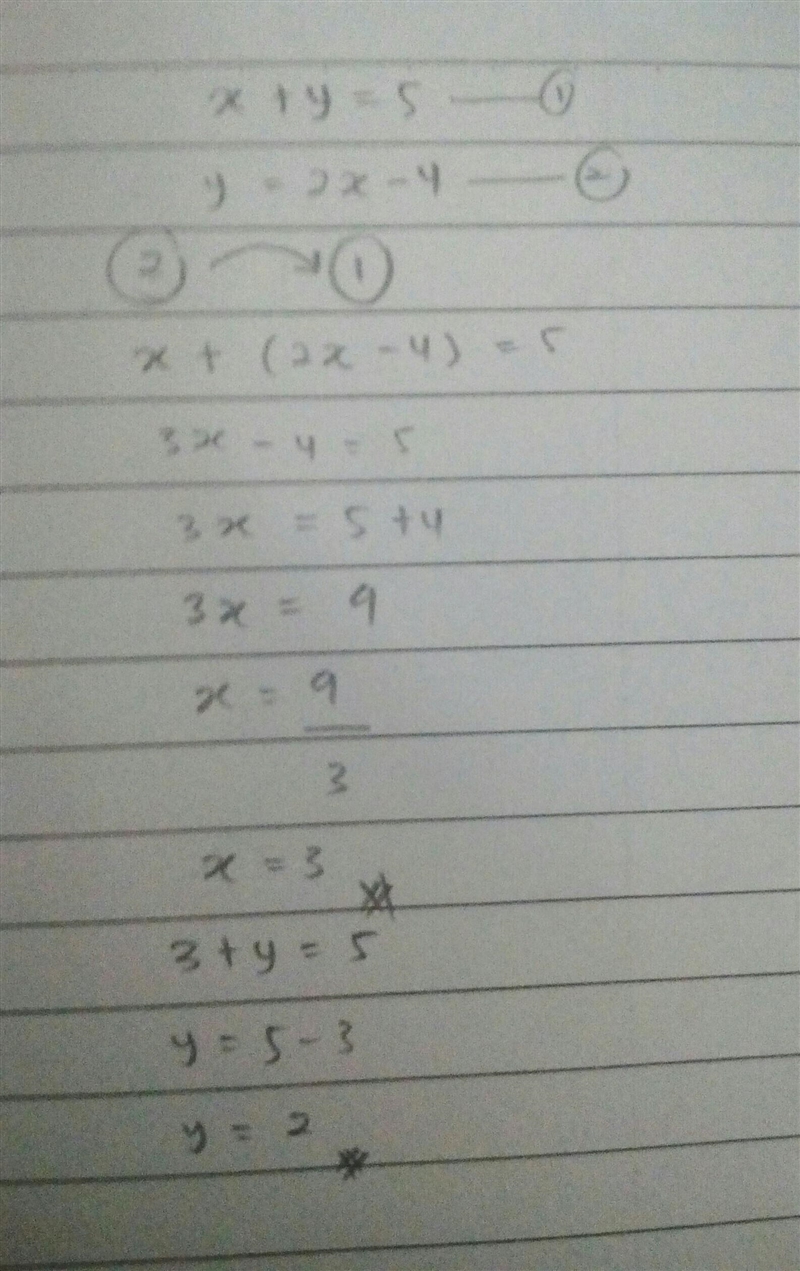 x + y = 5 —— ①
y = 2x - 4 —— ②
② → ①
x + (2x - 4) = 5
3x - 4 = 5
3x = 5 + 4
3x = 9
x = 9
3
x = 3
3 + y = 5
y = 5 - 3
y = 2